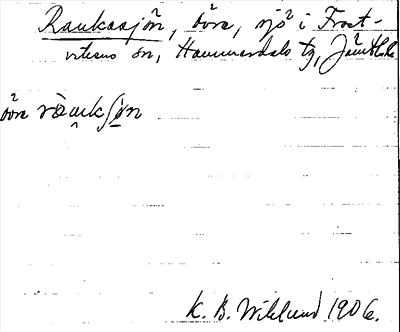 Raukasjön, övre, sjö i Frost-
vikens sn, Hammerdals tg, Jämtl.
övre ræ̀ukʃo̱n
K. B. Wiklund 1906.